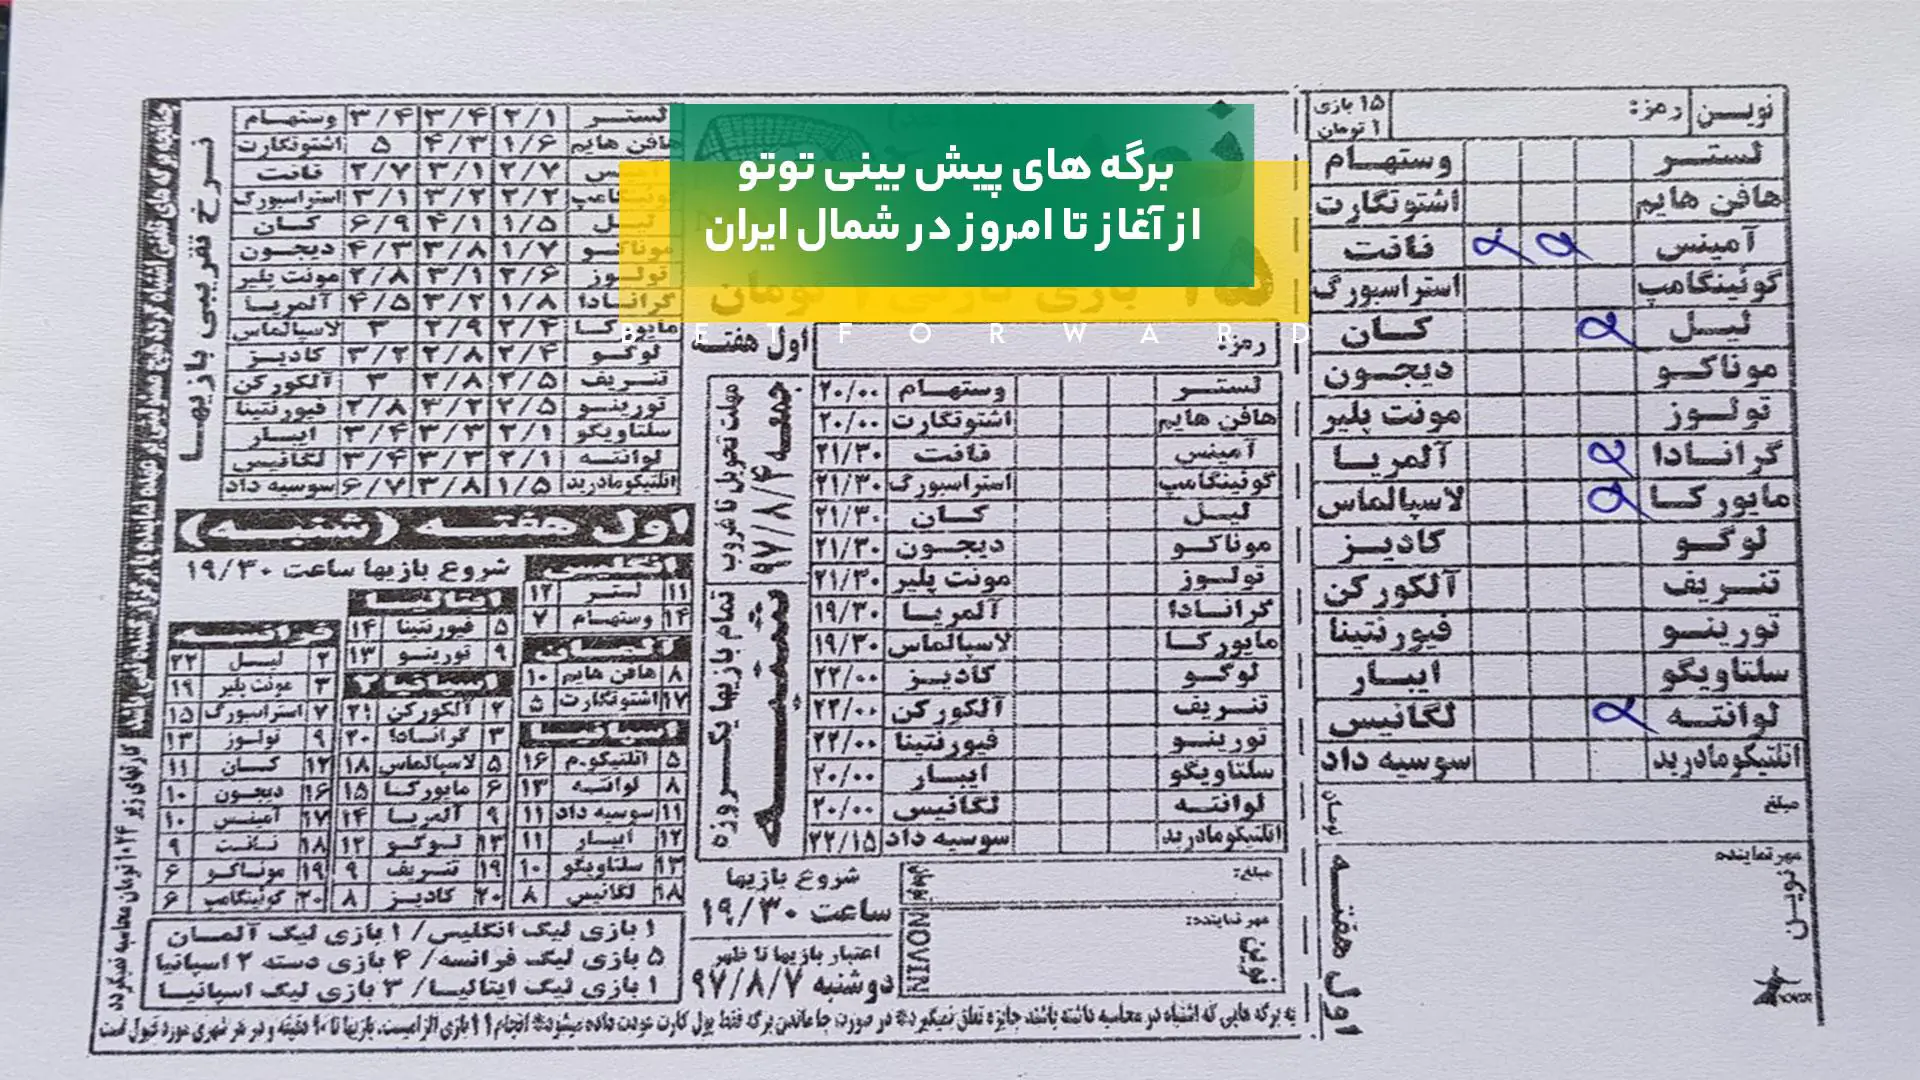 برگه های پیش بینی توتو
از آغاز تا امروز در شمال ایران
BETFORWARD
نوین رمز: ۱۵ بازی ۱ تومان
لستر وستهام
هافن هایم اشتوتگارت
آمینس نانت
گوئینگامپ استراسبورگ
لیل کان
موناکو دیجون
تولوز مونت پلیر
گرانادا آلمریا
مایورکا لاسپالماس
لوگو کادیز
تنریف آلکورکن
تورینو فیورنتینا
سلتاویگو ایبار
لوانته لگانیس
اتلتیکومادرید سوسیه داد
مبلغ تومان
مهر نماینده
اول هفته
۱۵ بازی ۱ تومان
رمز: اول هفته
لستر وستهام ۲۰/۰۰
هافن هایم اشتوتگارت ۲۰/۰۰
آمینس نانت ۲۱/۳۰
گوئینگامپ استراسبورگ ۲۱/۳۰
لیل کان ۲۱/۳۰
موناکو دیجون ۲۱/۳۰
تولوز مونت پلیر ۲۱/۳۰
گرانادا آلمریا ۱۹/۳۰
مایورکا لاسپالماس ۱۹/۳۰
لوگو کادیز ۲۲/۰۰
تنریف آلکورکن ۲۲/۰۰
تورینو فیورنتینا ۲۲/۰۰
سلتاویگو ایبار ۲۰/۰۰
لوانته لگانیس ۲۰/۰۰
اتلتیکومادرید سوسیه داد ۲۲/۱۵
مهلت تحویل تا غروب
جمعه ۹۷/۸/۴
تمام بازیها یکروزه
شنبه
مبلغ: تومان
مهر نماینده:
نوین
NOVIN
شروع بازیها
ساعت ۱۹/۳۰
اعتبار بازیها تا ظهر
دوشنبه ۹۷/۸/۷
نرخ تقریبی بازیها
لستر ۲/۱ ۳/۴ ۳/۴ وستهام
هافن هایم ۱/۶ ۴/۳ ۵ اشتوتگارت
۲/۷ ۳/۱ ۲/۷ نانت
گوئینگامپ ۲/۲ ۳/۲ ۳/۱ استراسبورگ
لیل ۱/۵ ۴/۱ ۶/۹ کان
موناکو ۱/۷ ۳/۸ ۴/۳ دیجون
تولوز ۲/۶ ۳/۱ ۲/۸ مونت پلیر
گرانادا ۱/۸ ۳/۲ ۴/۵ آلمریا
مایورکا ۲/۴ ۲/۹ ۳ لاسپالماس
لوگو ۲/۴ ۲/۸ ۳/۲ کادیز
تنریف ۲/۵ ۲/۸ ۳ آلکورکن
تورینو ۲/۵ ۳/۲ ۲/۸ فیورنتینا
سلتاویگو ۲/۱ ۳/۳ ۳/۴ ایبار
لوانته ۲/۱ ۳/۳ ۳/۴ لگانیس
اتلتیکومادرید ۱/۵ ۳/۸ ۶/۷ سوسیه داد
اول هفته (شنبه)
شروع بازیها ساعت ۱۹/۳۰
انگلیس
۱۱ لستر ۱۲
۱۴ وستهام ۷
آلمان
۸ هافن هایم ۱۰
۱۷ اشتوتگارت ۵
اسپانیا
۵ اتلتیکو.م ۱۶
۸ لوانته ۱۳
۱۱ سوسیه داد ۱۱
۱۲ ایبار ۱۱
۱۳ سلتاویگو ۱۰
۱۸ لگانیس ۸
ایتالیا
۵ فیورنتینا ۱۴
۹ تورینو ۱۳
اسپانیا ۲
۲ آلکورکن ۲۱
۳ گرانادا ۲۰
۵ لاسپالماس ۱۸
۶ مایورکا ۱۵
۹ آلمریا ۱۴
۱۳ لوگو ۱۲
۱۹ تنریف ۹
۲۰ کادیز ۸
فرانسه
۲ لیل ۲۲
۳ مونت پلیر ۱۹
۷ استراسبورگ ۱۵
۹ تولوز ۱۳
۱۲ کان ۱۱
۱۶ دیجون ۱۰
۱۷ آمینس ۱۰
۱۸ نانت ۹
۱۹ موناکو ۶
۲۰ گوئینگامپ ۶
۱ بازی لیگ انگلیس/ ۱ بازی لیگ آلمان
۵ بازی لیگ فرانسه/ ۴ بازی دسته ۲ اسپانیا
۱ بازی لیگ ایتالیا/ ۳ بازی لیگ اسپانیا
کارتهای زیر ۱۰۲۴ تومان محاسبه نمیگردد
به برگه هایی که اشتباه در محاسبه داشته باشند جایزه تعلق نمیگیرد* در صورت جا ماندن برگه فقط پول کارت عودت داده میشود* انجام ۱۱ بازی الزامیست. بازیها تا ۹۰ دقیقه و در هر شهری مورد قبول است